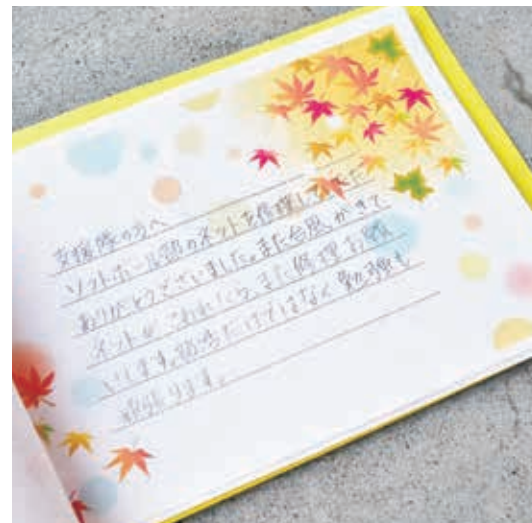 支援隊の方へ
ソフトボール部のネットを修理して下さった
ありがとうございました。また台風がきて
ネットが、これたら、また修理お願
いします。部活だけではなく勉強も
頑張ります。